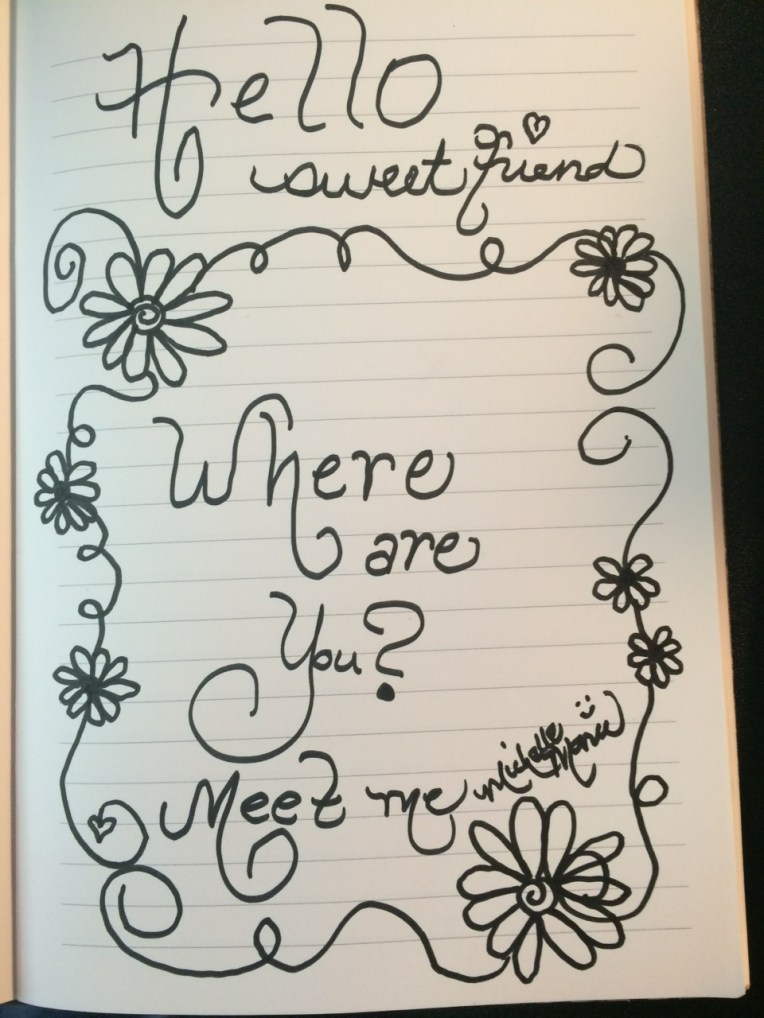 Hello
sweet friend
Where
are
You?
Meet me
Michelle
Marie